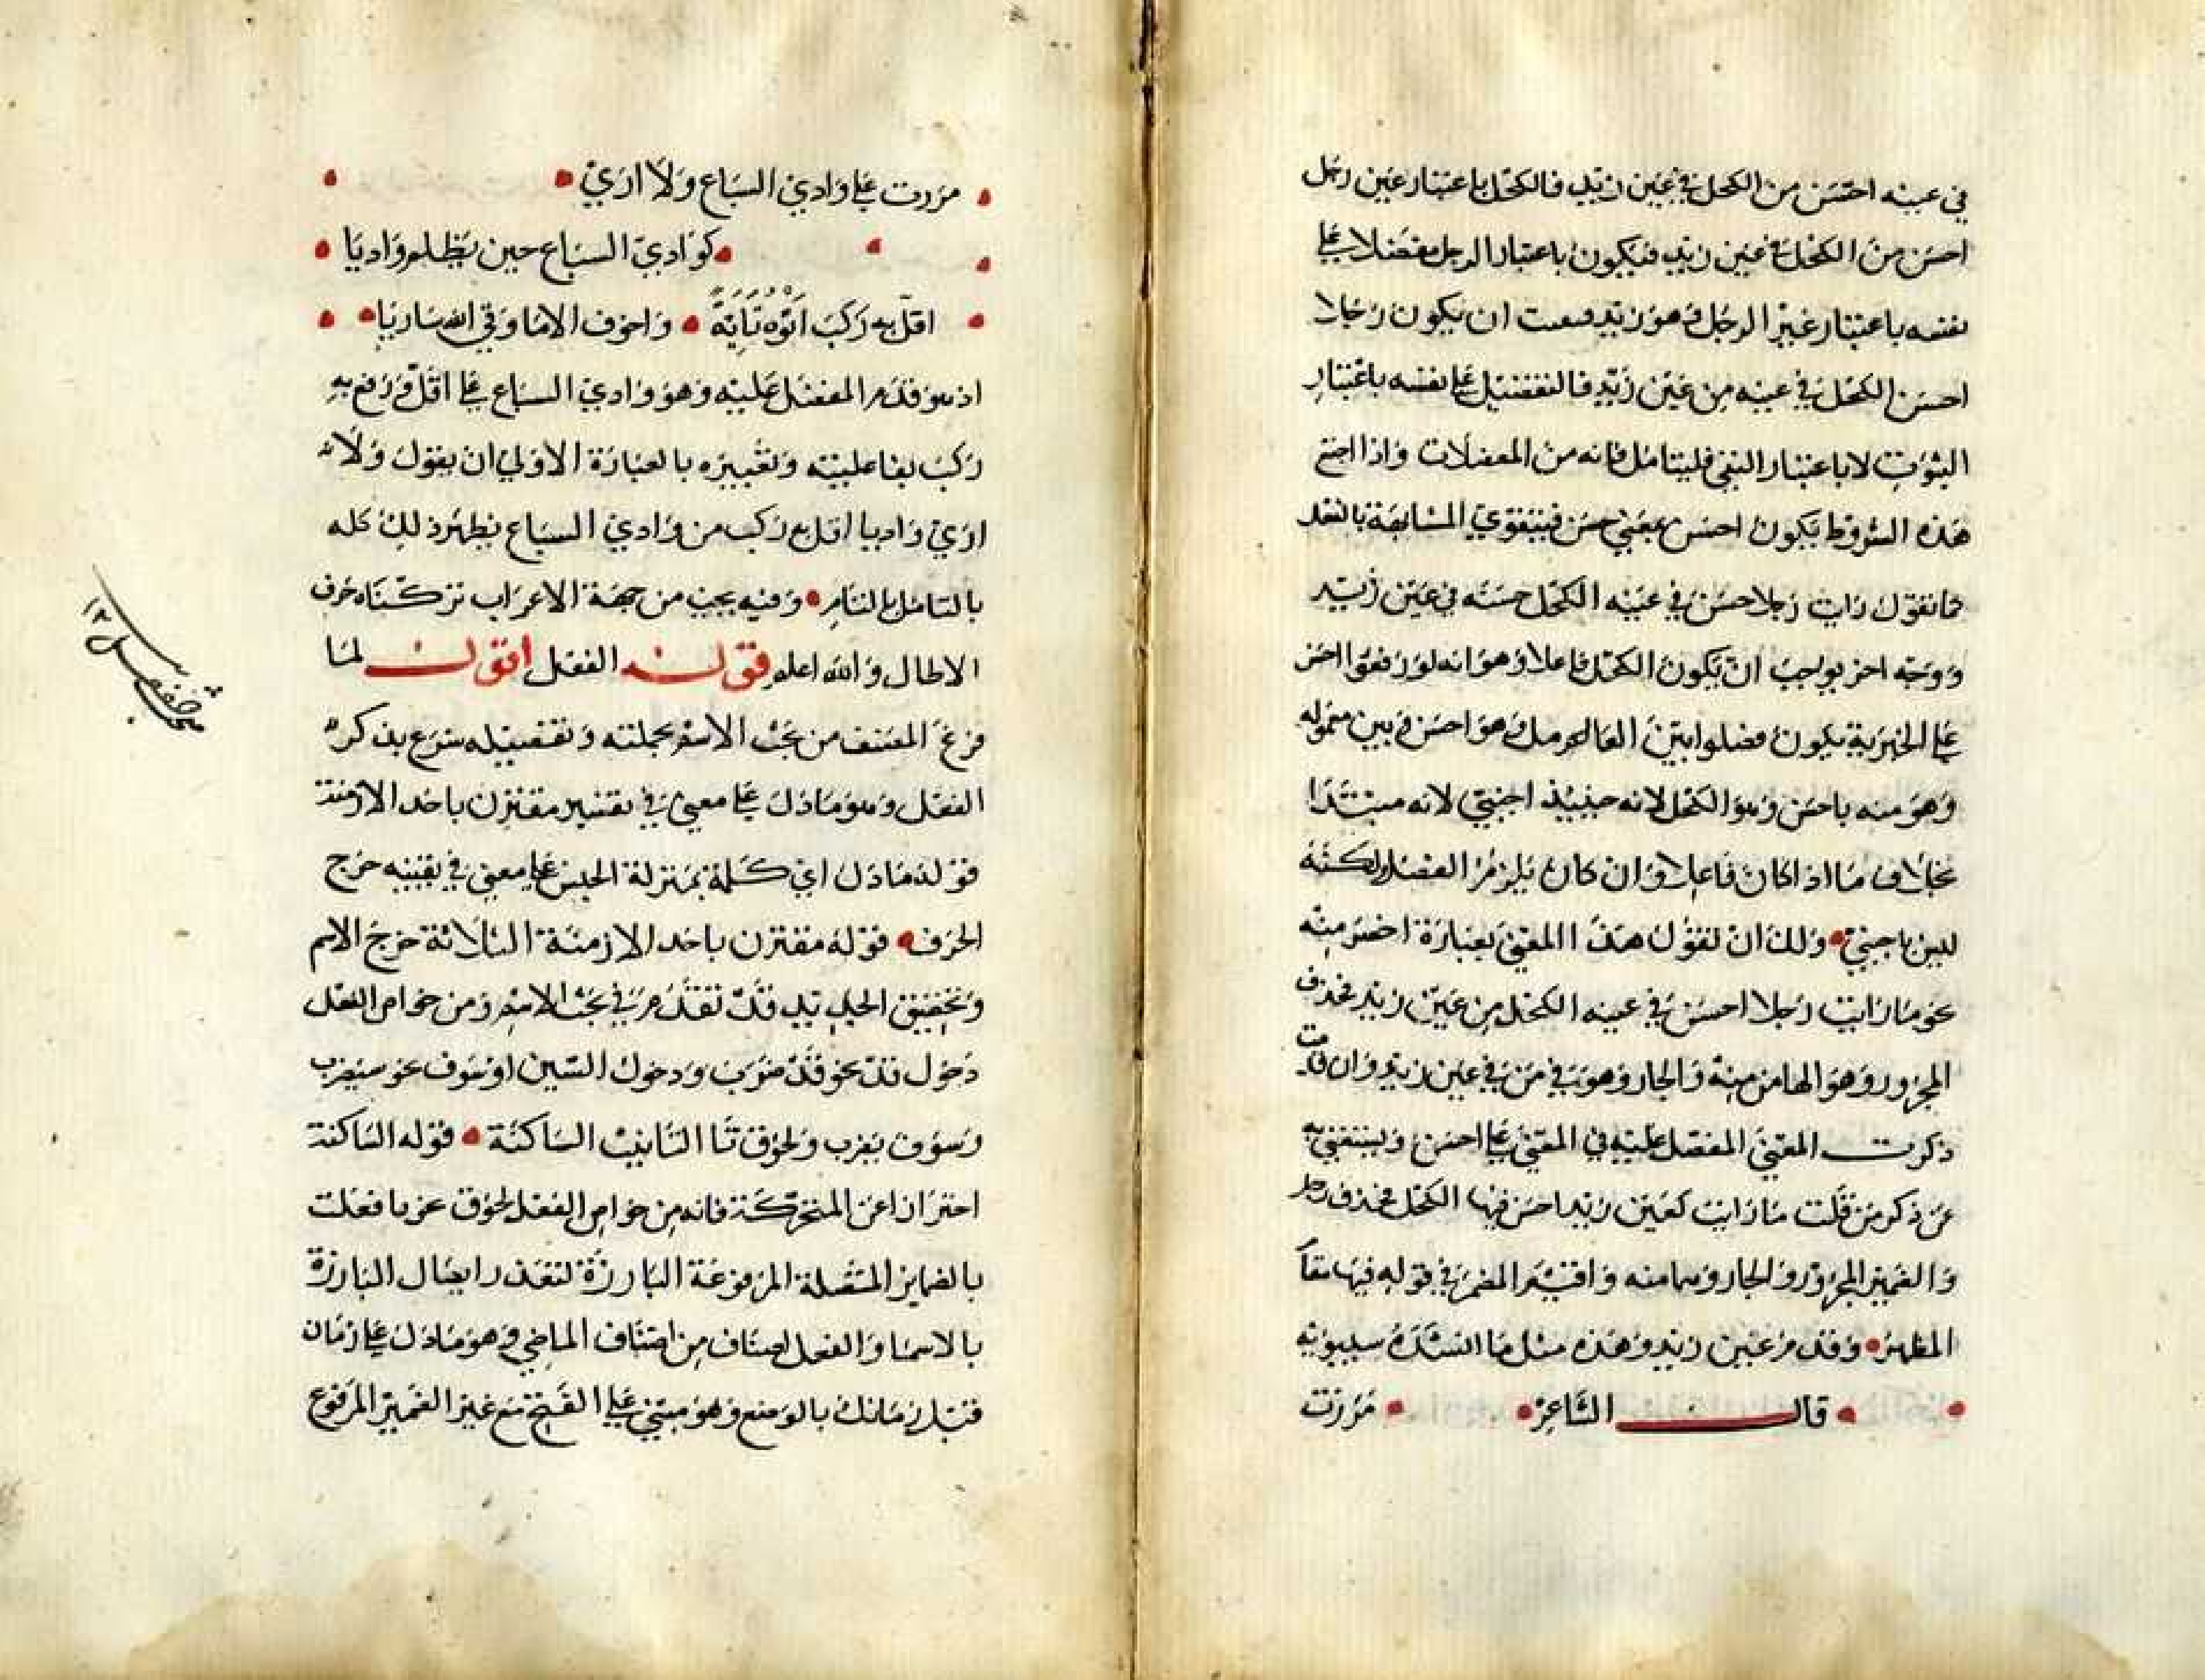 في عينه احسن من الكحل في عين زيد فالكحل باعتبار عين رجل
احسن من الكحل في عين زيد فيكون باعتبار الرجل مفضلا على
نفسه باعتبار غير الرجل وهو زيد ان يكون رجلا
احسن الكحل في عينه من عين زيد فالتفضيل على نفسه باعتبار
الثبوت لا باعتبار النفي فليتامل فانه من المعضلات واذا اجتمع
هذه الشروط يكون احسن بمعني حسن فيتقوي المشابهة بالفعل
كما تقول رايت رجلا حسن في عينه الكحل حسنه في عين زيد
ووجه اخر يوجب ان يكون الكحل فاعلا وهو انه لو رفعوا احسن
على الخبرية يكون فصلوا بين العامل وهو احسن وبين معموله
وهو منه باحسن وهو الكحل لانه حينيذ اجنبي لانه مبتدا
بخلاف ما اذا كان فاعلا وان كان يلزم الفصل ولكنه
ليس باجنبي ولك ان تقول هذا المعني بعبارة اخصر منه
نحو ما رايت رجلا احسن في عينه الكحل من عين زيد بحذف
المجرور وهو الها من منه والجار وهو في من في عين زيد وان قدمت
ذكرت المعني المفضل عليه في المعني على احسن ويستغني به
عن ذكر من قلت ما رايت كعين زيد احسن فيها الكحل بحذف رجل
والضمير المجرور والجار وهما منه واقيم المضمر في قوله فيها مقام
المظهر وقد مر عين زيد وهذه مثل ما انشده سيبويه
قال الشاعر مررت
مررت على وادي السباع ولا اري
كوادي السباع حين يظلم واديا
اقل به ركب اتوه تاية واخوف الا ما وقي الله ساريا
اذ هو قدم المفضل عليه وهو وادي السباع على اقل ورفع به
ركب بفاعليته وتغييره بالعبارة الاولي ان يقول ولا
اري واديا اقل به ركب من وادي السباع يظهر ذلك كله
بالتامل التام وفيه بحث من جهة الاعراب تركناه خوف
الاطال والله اعلم قوله الفعل اقول لما
فرغ المصنف من بحث الاسم بجملته وتفصيله شرع بذكر
الفعل وهو ما دل على معني في نفسه مقترن باحد الازمنة
قوله ما دل اي كلمة بمنزلة الجنس على معني في نفسه خرج
الحرف قوله مقترن باحد الازمنة الثلاثة خرج الاسم
وتحقيق الحد قد تقدم في بحث الاسم ومن خواص الفعل
دخول قد نحو قد ضرب ودخول السين او سوف نحو سيضرب
وسوف يضرب ولحوق تا التانيث الساكنة قوله الساكنة
احترازا عن المتحركة فانه من خواص الفعل لحوق نحو يا فعلت
بالضماير المتصلة المرفوعة البارزة لتعذر ايصال البارزة
بالاسما والفعل اصناف من اصناف الماضي وهو ما دل على زمان
قبل زمانك بالوضع وهو مبني على الفتح مع غير الضمير المرفوع